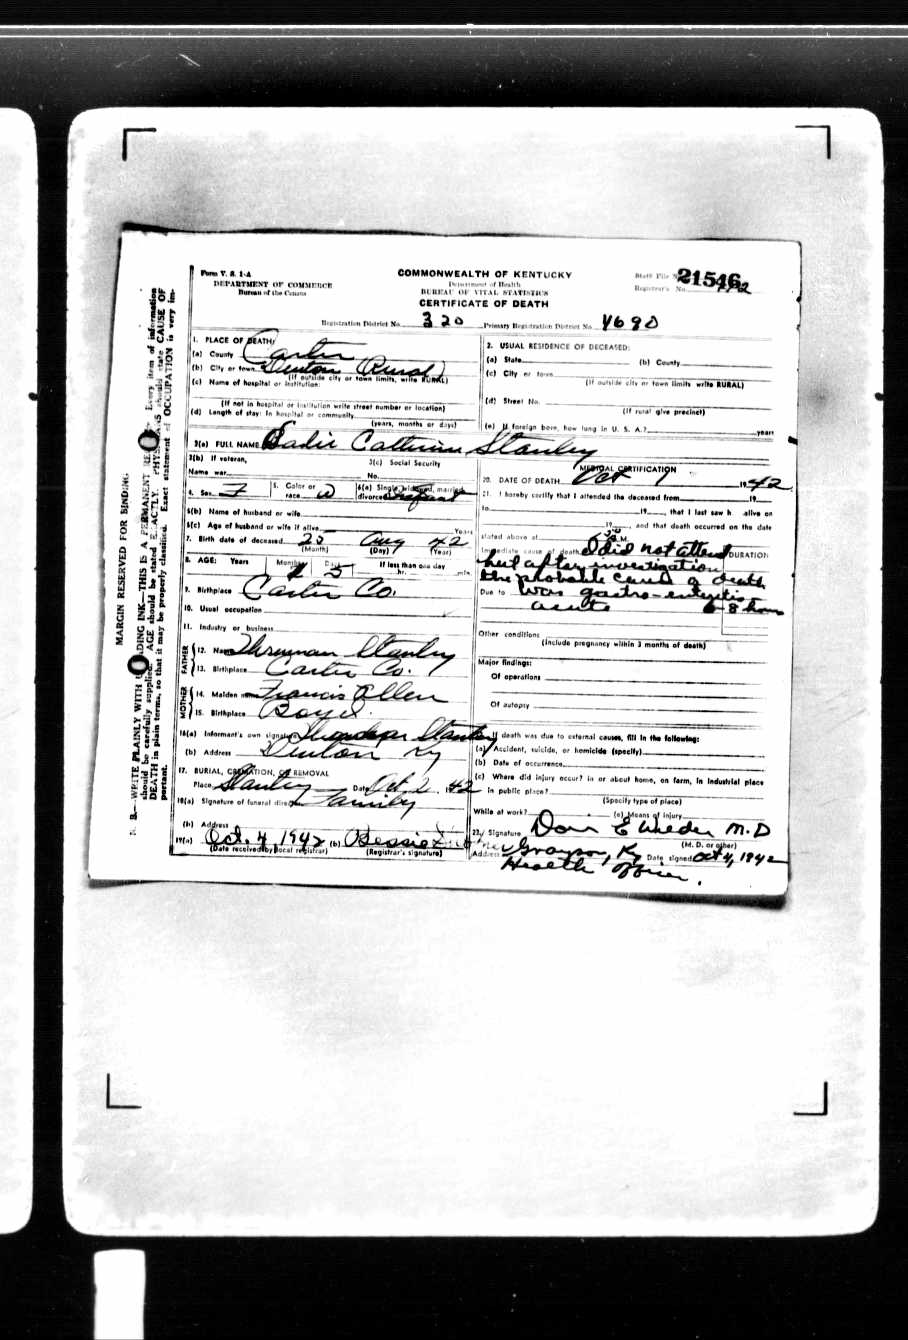 Form V. S. 1-A
DEPARTMENT OF COMMERCE
Bureau of the Census
COMMONWEALTH OF KENTUCKY
Department of Health
BUREAU OF VITAL STATISTICS
CERTIFICATE OF DEATH
State File No. 21546
Registrar's No.
Registration District No. 320 Primary Registration District No. 4690
MARGIN RESERVED FOR BINDING
N. B.—WRITE PLAINLY WITH UNFADING INK—THIS IS A PERMANENT RECORD. Every item of information
should be carefully supplied. AGE should be stated EXACTLY. PHYSICIANS should state CAUSE OF
DEATH in plain terms, so that it may be properly classified. Exact statement of OCCUPATION is very im-
portant.
1. PLACE OF DEATH:
(a) County Carter
(b) City or town Denton (Rural)
(If outside city or town limits, write RURAL)
(c) Name of hospital or institution:
(If not in hospital or institution write street number or location)
(d) Length of stay: In hospital or community
(years, months or days)
2. USUAL RESIDENCE OF DECEASED:
(a) State (b) County
(c) City or town
(If outside city or town limits write RURAL)
(d) Street No.
(If rural give precinct)
(e) If foreign born, how long in U. S. A.? years
3(a) FULL NAME Sadie Catherine Stanley
3(b) If veteran, 3(c) Social Security
Name war No.
4. Sex F 5. Color or race W 6(a) Single, widowed, married, divorced Infant
6(b) Name of husband or wife
6(c) Age of husband or wife if alive Years
7. Birth date of deceased 25 Aug 42
(Month) (Day) (Year)
8. AGE: Years Months 1 Days 5 If less than one day
hr. min.
9. Birthplace Carter Co.
10. Usual occupation
11. Industry or business
FATHER
12. Name Thurman Stanley
13. Birthplace Carter Co.
MOTHER
14. Maiden name Francis Allen
15. Birthplace Boyd
16(a) Informant's own signature Stanley
(b) Address Denton Ky
17. BURIAL, CREMATION, OR REMOVAL
Place Stanley Date Oct. 2, 1942
18(a) Signature of funeral director Family
(b) Address
19(a) Oct. 4, 1942 (b) Bessie
(Date received by local registrar) (Registrar's signature)
MEDICAL CERTIFICATION
20. DATE OF DEATH Oct 1 1942
21. I hereby certify that I attended the deceased from 19
to 19, that I last saw h alive on
19, and that death occurred on the date
stated above at M.
Immediate cause of death I did not attend DURATION
but after investigation
the probable cause of death
Due to was gastro-enteritis
acute 6-8 hours
Other conditions
(Include pregnancy within 3 months of death)
Major findings:
Of operations
Of autopsy
22. If death was due to external causes, fill in the following:
(a) Accident, suicide, or homicide (specify)
(b) Date of occurrence
(c) Where did injury occur? in or about home, on farm, in industrial place
in public place?
(Specify type of place)
While at work? (e) Means of injury
23. Signature M. D
(M. D. or other)
Address Grayson, Ky Date signed Oct 4, 1942
Health Officer.